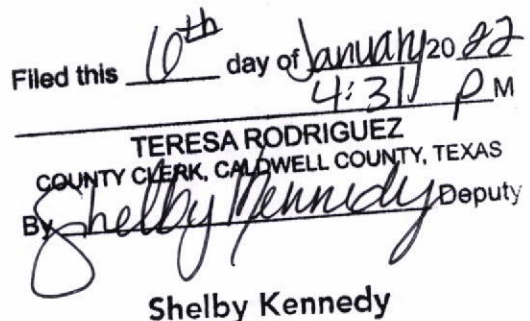 Filed this 6th day of January 20 22
4:31 P M
TERESA RODRIGUEZ
COUNTY CLERK, CALDWELL COUNTY, TEXAS
By Shelby Kennedy Deputy
Shelby Kennedy